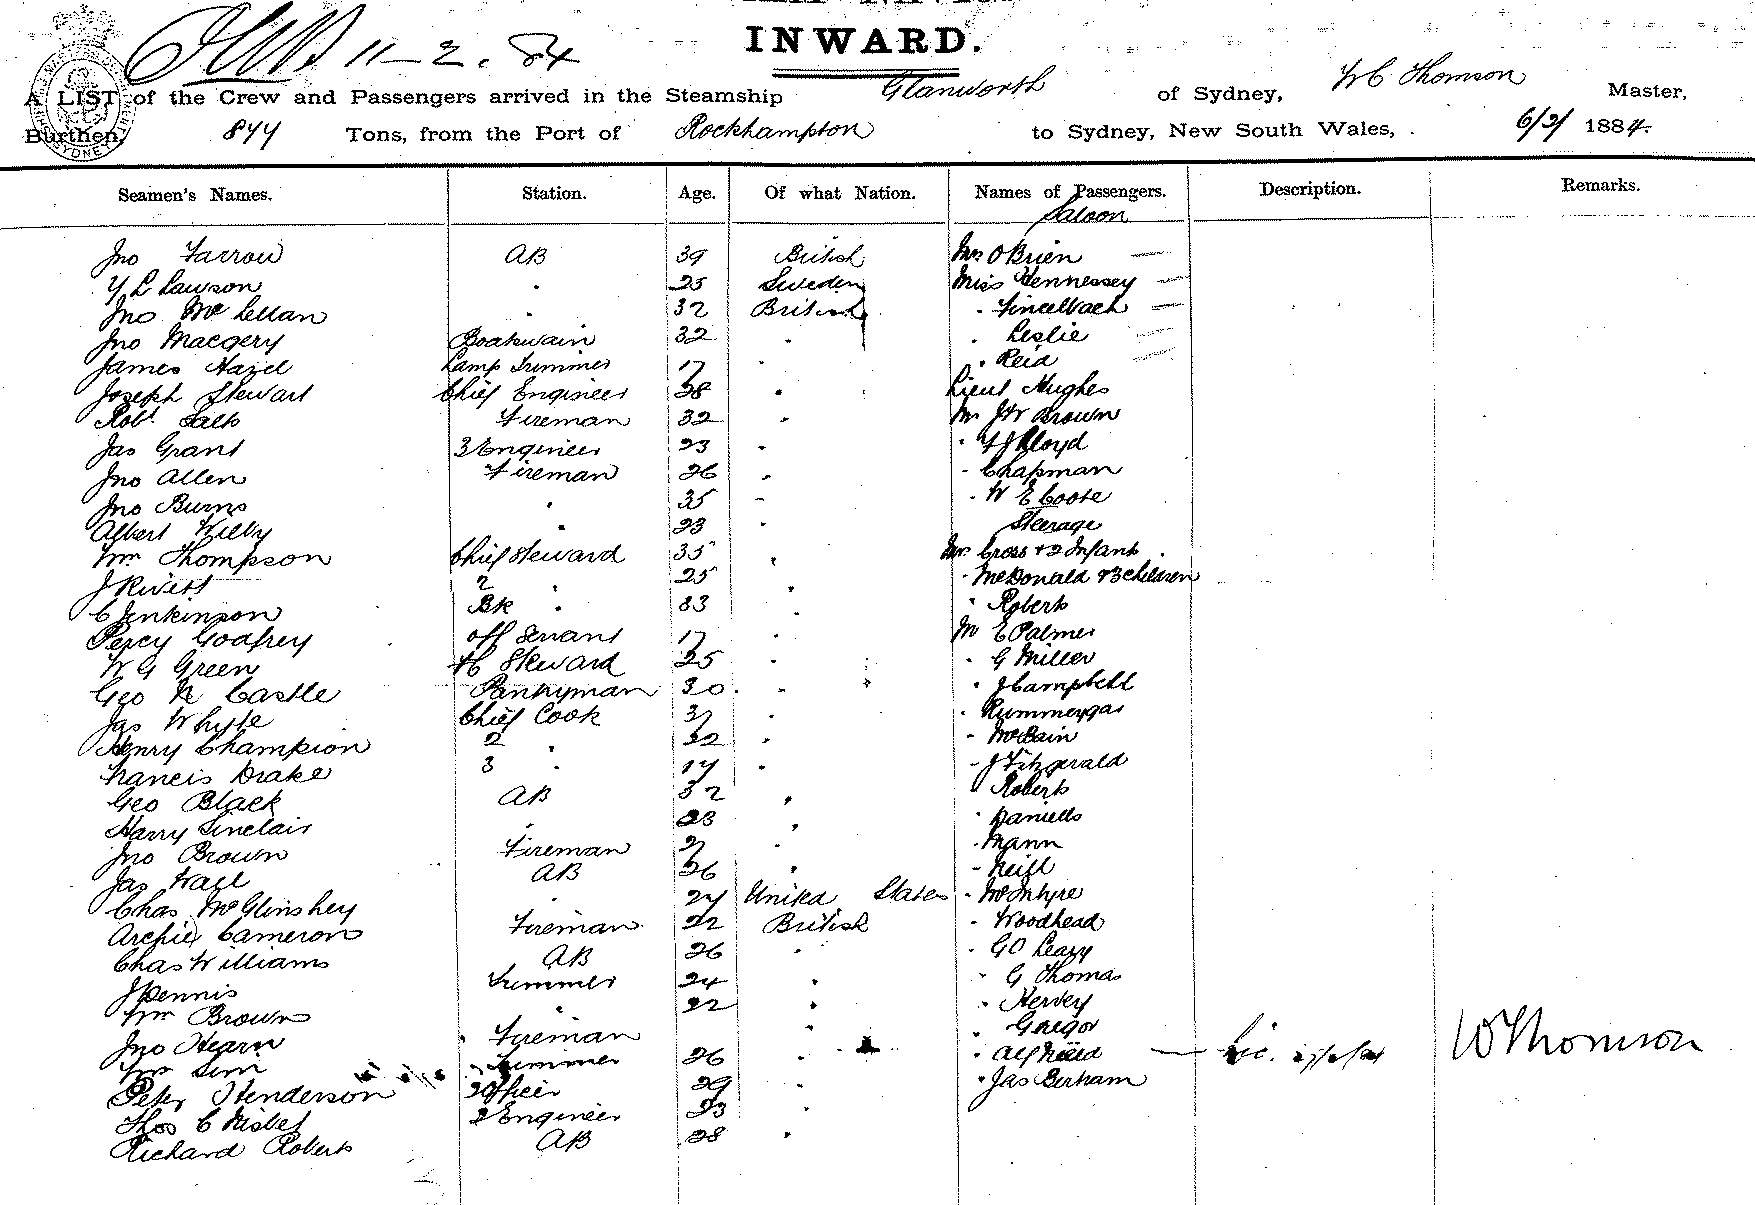 INWARD.
11-2. 84
A LIST of the Crew and Passengers arrived in the Steamship Glanworth of Sydney, W C Thomson Master,
Burthen, 877 Tons, from the Port of Rockhampton to Sydney, New South Wales, 6/2/ 1884.
Seamen's Names. Station. Age. Of what Nation. Names of Passengers. Description. Remarks.
Saloon
Jno Farrow AB 39 British Mrs O'Brien —
Lawson " 25 Sweden Miss Hennessey —
Jno McLellan " 32 British " Fincelbach —
Jno Macgery Boatswain 32 " " Leslie —
James Hazel Lamp Trimmer 17 " Reid —
Joseph Stewart Chief Engineer 38 " Lieut Hughes
Robt. Salt Fireman 32 " Mr JW Brown
Jas Grant 3 Engineer 23 " " Lloyd
Jno Allen Fireman 26 " " Chapman
Jno Burns " 35 " " W E Coote
Albert Wilby " 23 " Steerage
Wm Thompson Chief Steward 35 " Mrs Cross & 2 Infant
J Rivett 2 " 25 " " McDonald & 3 Children
C Jenkinson Bk " 33 " " Roberts
Percy Godfrey off Servant 17 " Mr E Palmer
W G Green Steward 25 " " G Miller
Geo N Castle Pantryman 30 " " J Campbell
Jas Whyte Chief Cook 37 " " Rummeygas
Henry Champion 2 " 22 " " McBain
Francis Drake 3 " 17 " " J Fitzgerald
Geo Black AB 32 " " Roberts
Harry Sinclair " 23 " " Daniells
Jno Brown Fireman " " Mann
Jas Wall AB 26 " " Neill
Chas McGlinshey " 27 United States " McIntyre
Archie Cameron Fireman 22 British " Woodhead
Chas Williams AB 26 " " G O Leary
J Dennis Trimmer 24 " " G Thomas
Wm Brown " 22 " " Hervey
Jno Hearn Fireman " " Gregor
Wm Sim Trimmer 26 " " Alf — W Thomson
Peter Henderson 2 Officer 29 " " Jas Bertram
Thos C Nisbet 2 Engineer 23 "
Richard Roberts AB 28 "